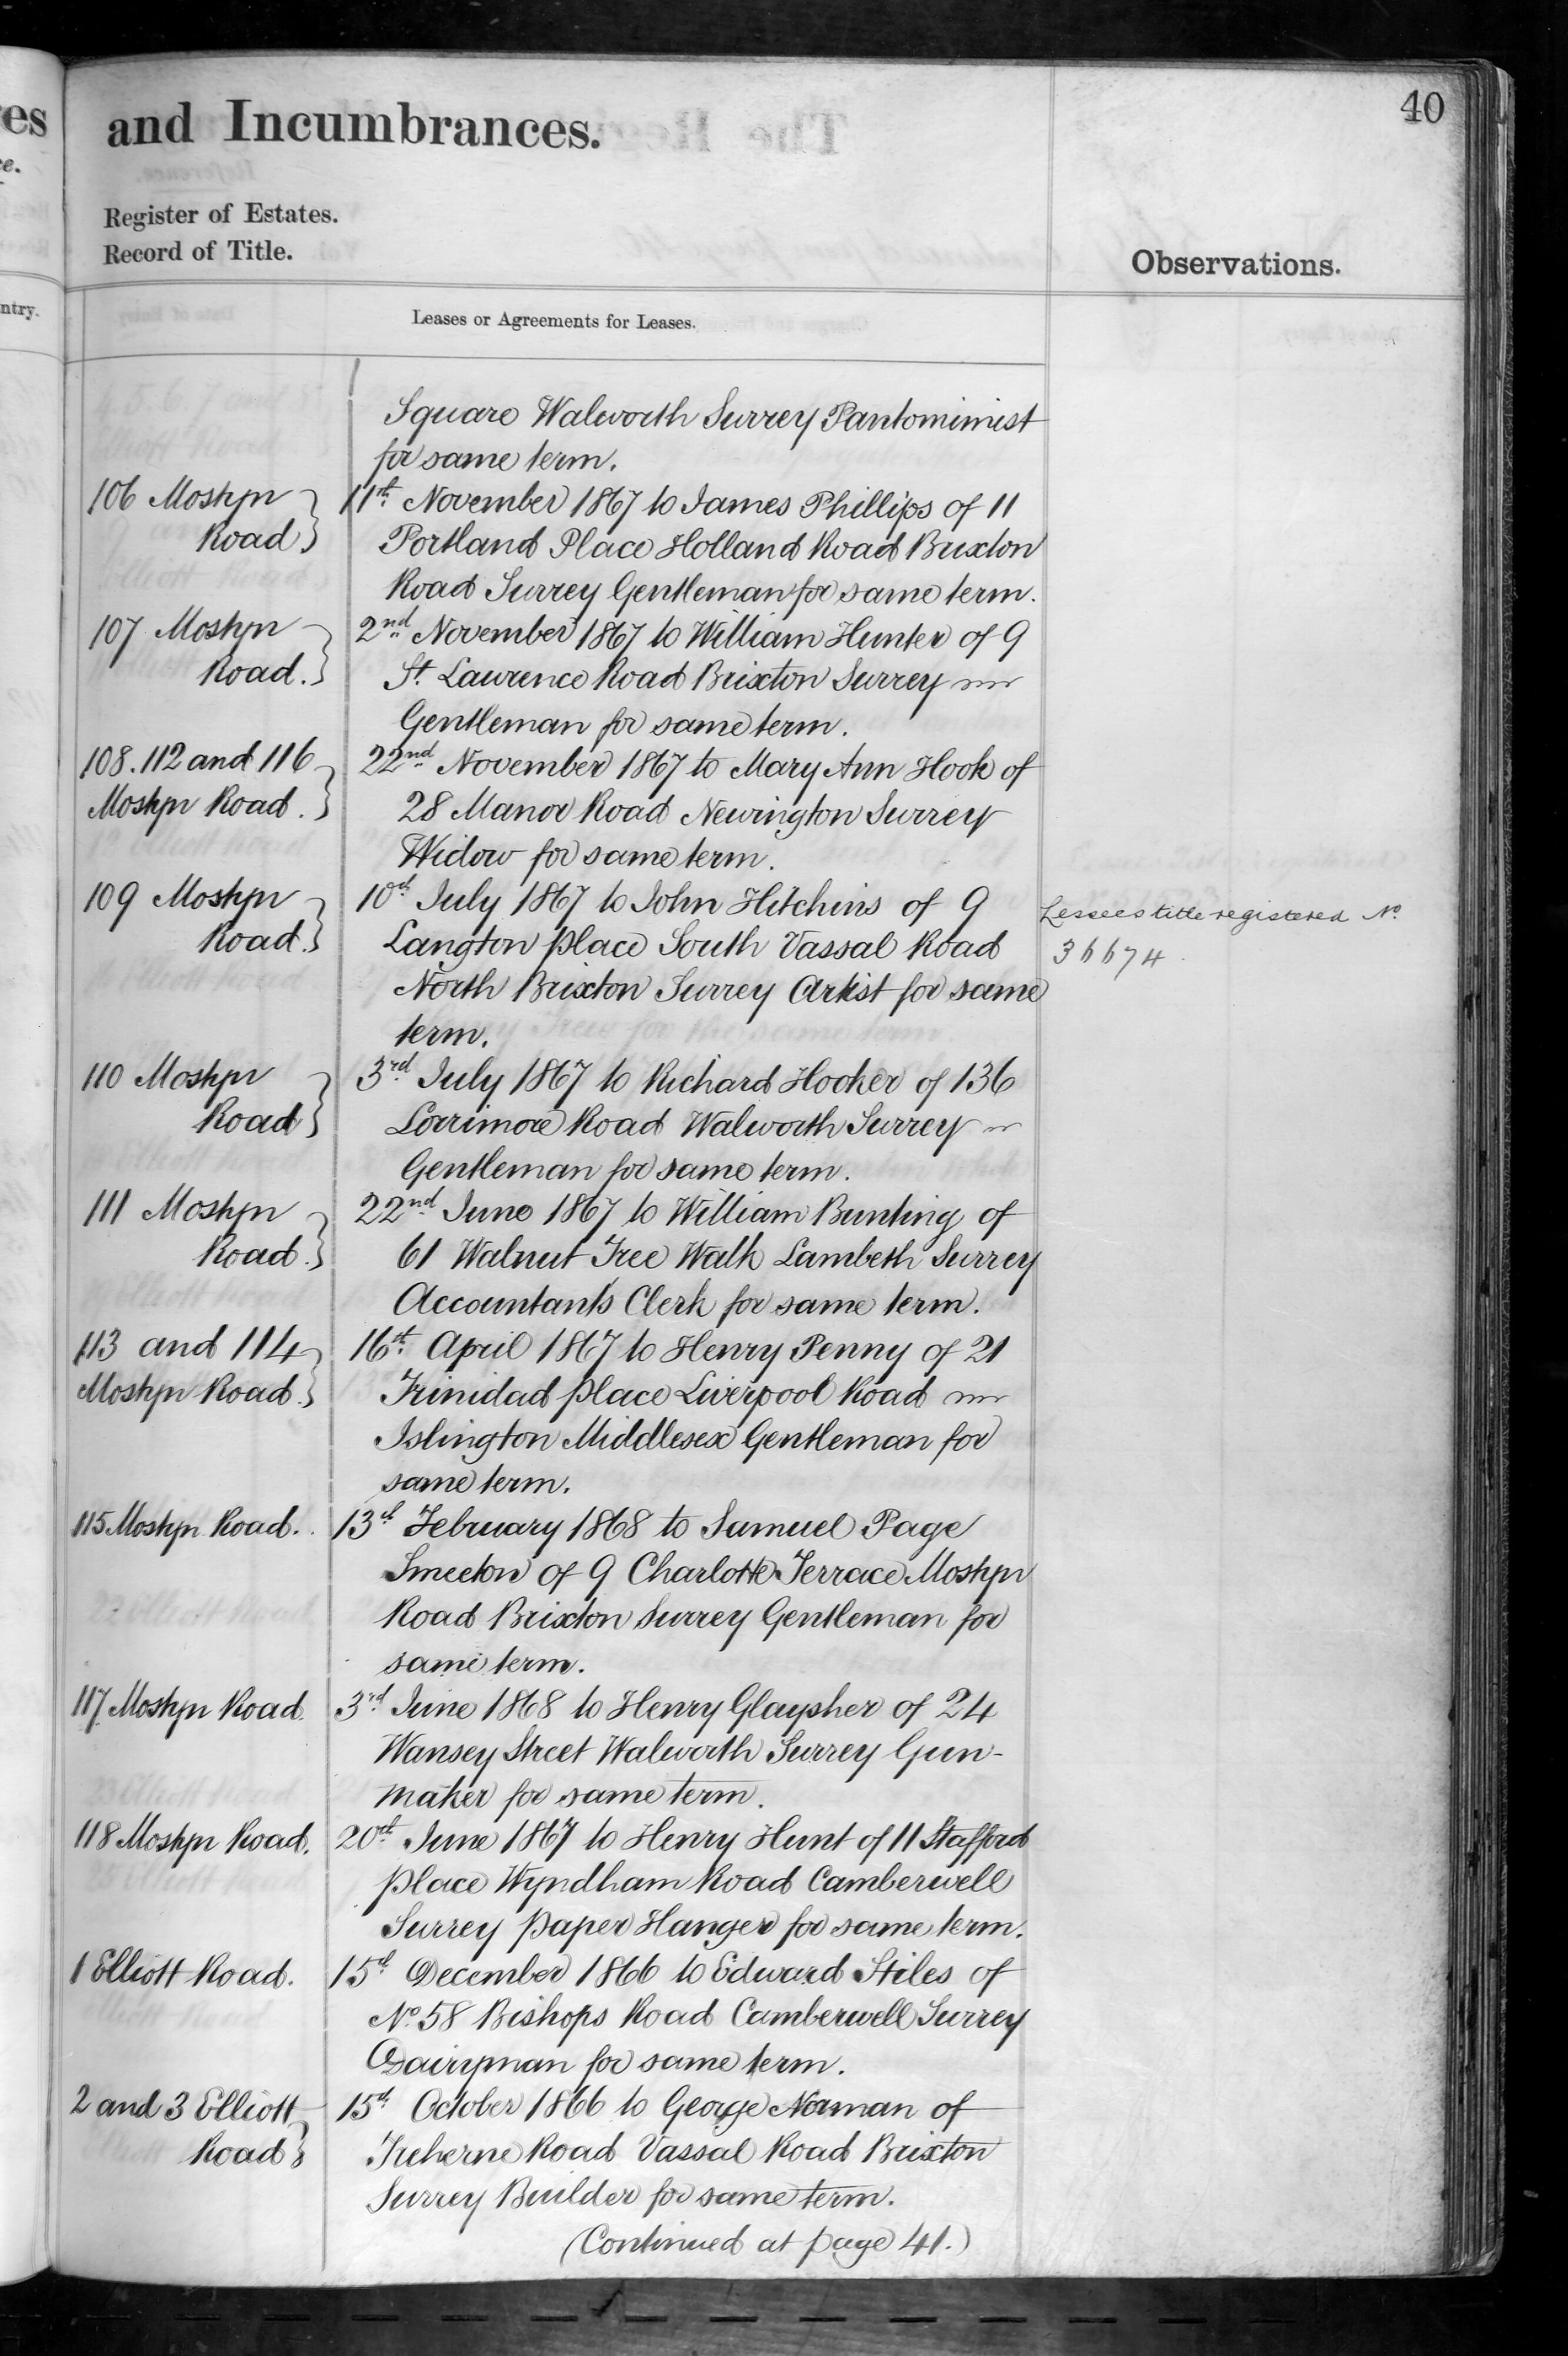 40
es
and Incumbrances.
e.
Register of Estates.
Record of Title.
Observations.
ntry.
Leases or Agreements for Leases.
Square Walworth Surrey Pantomimist
for same term.
106 Mostyn 11th November 1867 to James Phillips of 11
Road Portland Place Holland Road Brixton
Road Surrey Gentleman for same term.
107 Mostyn 2nd November 1867 to William Hunter of 9
Road. St. Lawrence Road Brixton Surrey
Gentleman for same term.
108. 112 and 116 22nd November 1867 to Mary Ann Hook of
Mostyn Road. 28 Manor Road Newington Surrey
Widow for same term.
109 Mostyn 10th July 1867 to John Hitchins of 9 Lessees title registered No.
Road. Langton place South Vassal Road 36674
North Brixton Surrey Artist for same
term.
110 Mostyn 3rd July 1867 to Richard Hooker of 136
Road Lorrimore Road Walworth Surrey
Gentleman for same term.
111 Mostyn 22nd June 1867 to William Bunting of
Road. 61 Walnut Tree Walk Lambeth Surrey
Accountants Clerk for same term.
113 and 114 16th April 1867 to Henry Penny of 21
Mostyn Road. Trinidad place Liverpool Road
Islington Middlesex Gentleman for
same term.
115 Mostyn Road. 13th February 1868 to Samuel Page
Smeeton of 9 Charlotte Terrace Mostyn
Road Brixton Surrey Gentleman for
same term.
117 Mostyn Road. 3rd June 1868 to Henry Glaysher of 24
Wansey Street Walworth Surrey Gun-
maker for same term.
118 Mostyn Road. 20th June 1867 to Henry Hunt of 11 Stafford
place Wyndham Road Camberwell
Surrey paper Hanger for same term.
1 Elliott Road. 15th December 1866 to Edward Stiles of
No. 58 Bishops Road Camberwell Surrey
Dairyman for same term.
2 and 3 Elliott 15th October 1866 to George Norman of
Road Treherne Road Vassal Road Brixton
Surrey Builder for same term.
(Continued at page 41.)